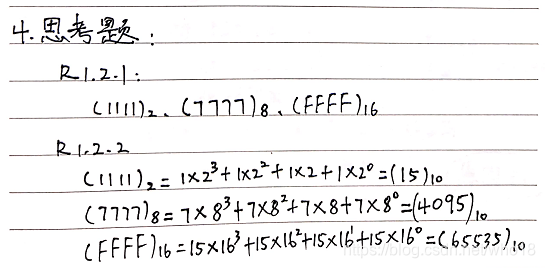 4.思考题:
R1.2.1:
(1111)₂、(7777)₈、(FFFF)₁₆
R1.2.2
(1111)₂=1×2³+1×2²+1×2+1×2⁰=(15)₁₀
(7777)₈=7×8³+7×8²+7×8+7×8⁰=(4095)₁₀
(FFFF)₁₆=15×16³+15×16²+15×16¹+15×16⁰=(65535)₁₀